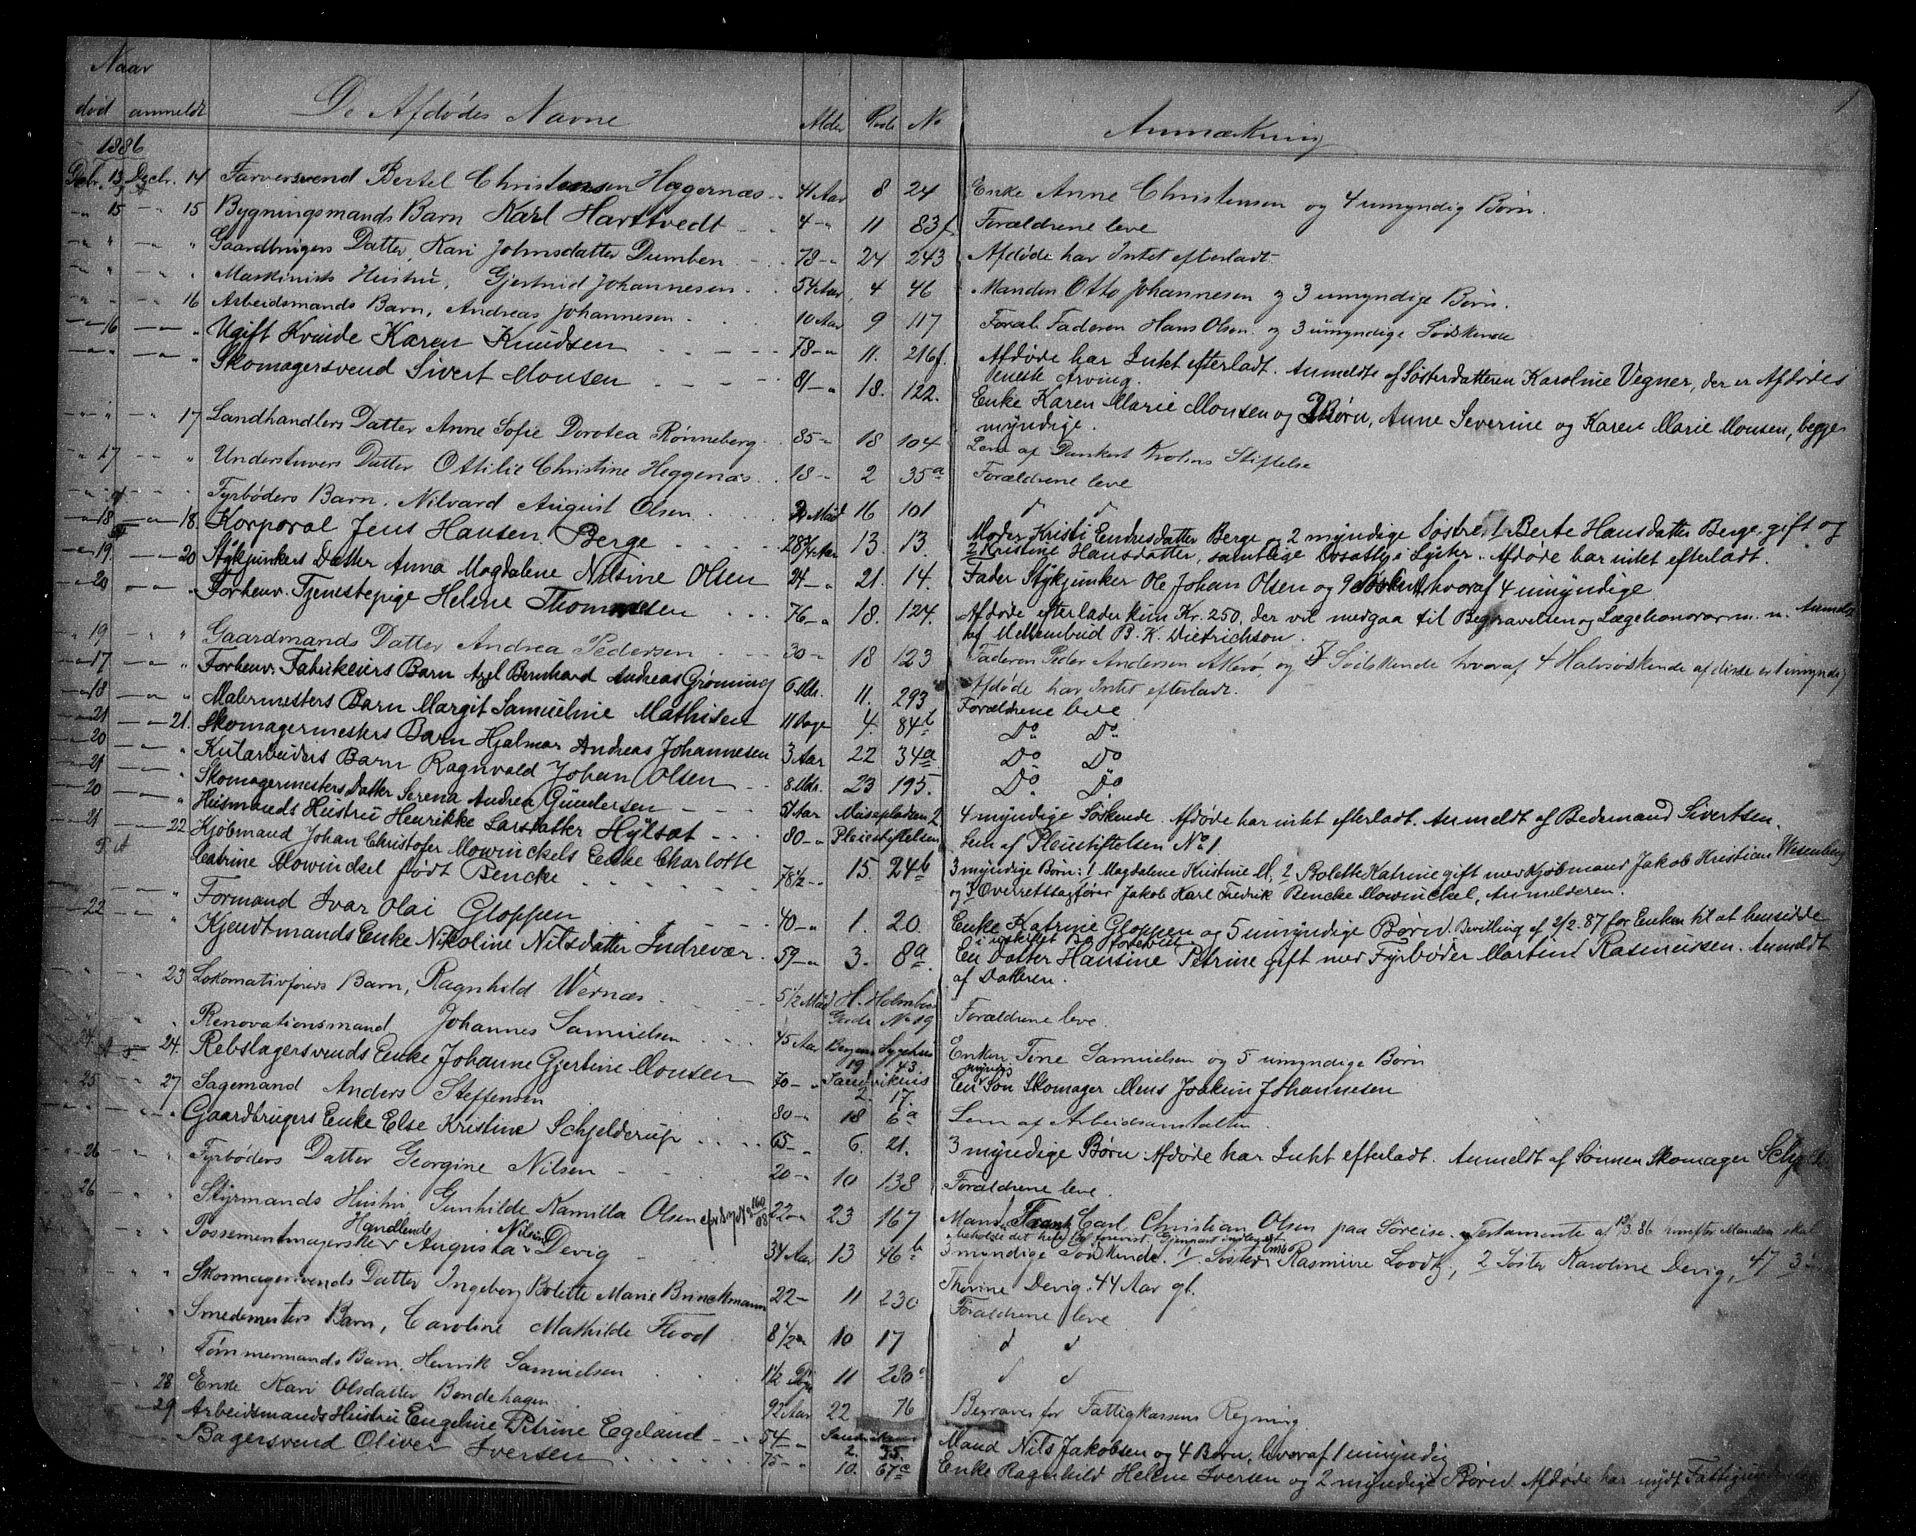 1
Naar
død anmeldt De Afdødes Navne Alder Rode No Anmærkning
1886
Decbr. 13 Decbr. 14 Farversvend Bertel Christensen Heggernæs 41 Aar 8 24 Enke Anne Christensen og 4 umyndig Børn.
" 15 — " 15 Bygningsmands Barn Karl Harttvedt 4 — " 11 83f Forældrene leve
" " — " " Gaardbrugers Datter, Kari Johnsdatter Dumben 78 — " 24 243 Afdøde har Intet efterladt
" " — " " Maskinists Hustru, Gjertrud Johannesen 54 Aar 4 46 Manden Otto Johannesen og 3 umyndige Børn.
" " — " 16 Arbeidsmands Barn, Andreas Johannesen 10 Aar 9 117 Faderen Hans Olsen og 3 umyndige Sødskende
— " 16 — " — " Ugift Kvinde Karen Knudsen 78 — " 11. 216f. Afdøde har Intet efterladt. Anmeldt af Søsterdatteren Karoline Vegner, der er Afdødes
eneste Arving.
— " — — " — " Skomagersvend Sivert Monsen 81 — " 18. 122. Enke Karen Marie Monsen og 2 Børn, Anne Severine og Karen Marie Monsen, begge
myndige.
" " — " 17 Landhandlers Datter Anne Sofie Dorotea Rønneberg 85 — " 18 104 Lem af Dankert Krohns Stiftelse
" 17 — " " Understuvers Datter Ottilie Christine Heggenæs 18 — " 2 35a Forældrene leve
Fyrbøders Barn, Nilvard August Olsen 2 Mdr 16 101 d d
— " 18 — " — 18. Korporal Jens Hansen Berge 28 Aar 13. 13. Moder Kristi Endresdatter Berge og 2 myndige Søstre, 1 Berte Hansdatter Berge, gift og
2 Kristine Hansdatter, samtlige bosatte i Lyster. Afdøde har intet efterladt.
— " 19 — " — 20 Stykjunkers Datter Anna Magdalene Nilsine Olsen 24 — " 21. 14. Fader Stykjunker Ole Johan Olsen og 9 Søskende hvoraf 4 umyndige
— " 20 — " — " Forhenv. Tjenestepige Helene Thommesen 76 — " 18. 124. Afdøde efterlader kun Kr. 250, der vil medgaa til Begravelsen og Lægehonorar m. m. Anmeldt
af Mellembud B. K. Dietrichson.
" 19 — " " Gaardmands Datter Andrea Pedersen 30 — " 18 123 Faderen Peder Andersen Akerø, og 5 Sødskende hvoraf 4 Halvsødskende af disse er 1 umyndig
Afdøde har Intet efterladt.
— " 17 — " — " Forhenv. Fabrikeiers Barn Axel Bernhard Andreas Grøning 6 Mdr. 11. 293 Forældrene leve
— " 18 — " — " Malermesters Barn Margit Samueline Mathisen 11 Dage 4. 84b Do Do
— " 21 — " — 21. Skomagermesters Barn Hjalmar Andreas Johannesen 3 Aar 22 34a Do Do
— " 20 — " — " Kularbeiders Barn Ragnvald Johan Olsen 8 Mdr. 23 195. Do Do
— " 21 — " — " Skomagermesters Datter Serena Andrea Gundersen 51 Aar Møllepladsen 2 4 myndige Søskende. Afdøde har intet efterladt. Anmeldt af Bedemand Sivertsen.
— " 20 — " — " Husmands Hustru Henrikke Larsdatter Hylsæt 80 — " Pleiestiftelsen Lem af Pleiestiftelsen No 1
— " 21 — " — 22 Kjøbmand Johan Christofer Mowinckels Enke Charlotte
Catrine Mowinckel født Bencke 78 1/2 — " 15. 24b 3 myndige Børn: 1 Magdalene Kristine M., 2 Bolette Katrine gift med Kjøbmand Jakob Kristian Wesenberg
og 3 Overretssagfører Jakob Karl Fredrik Bencke Mowinckel, Anmelderen.
Formand Ivar Olai Gloppen 40 — " 1. 20. Enke Katrine Gloppen og 5 umyndige Børn. Bevilling af 2/2. 87 for Enken til at hensidde
i uskiftet Bo forevist
— " 22 — " — " Kjendtmands Enke Nikoline Nilsdatter Indrevær 59 — " 3. 8a. En Datter Hansine Petrine gift med Fyrbøder Martin Rasmussen. Anmeldt
af Datteren.
" " " 23 Lokomativførers Barn, Ragnhild Wernæs 5 1/2 Mdr H. Holmboes
Gade No 19 Forældrene leve.
" " " Renovationsmand Johannes Samuelsen 45 Aar Bergens Sygehus
19 43. Enken Tine Samuelsen og 5 umyndige Børn
— " 24. — " 24. Rebslagersvends Enke Johanne Gjertine Monsen 70 — " Sandviken
2. 17. En myndig Søn Skomager Mons Joakim Johannesen
" 25 — " 27 Sagemand Anders Steffensen 80 — " 18 6a Lem af Arbeidsanstalten
— " — — " — " Gaardbrugers Enke Else Kristine Schjelderup 65 — " 6. 21. 3 myndige Børn. Afdøde har Intet efterladt. Anmeldt af Sønnen Skomager Schjeld.
" 26 " " Fyrbøders Datter Georgine Nilsen 20 — " 10 138 Forældrene leve.
" 26 " " Styrmands Hustru, Gunhilde Kamilla Olsen 22 — " 23 167 Mand Frank Carl Christian Olsen paa Søreise. Testamente af 12/3. 86 hvorefter Manden skal
beholde det hele Bo forevist. Gjenpart indleveret
" " " Possementmagerske Handlende Augusta Nilsine Devig 34 Aar 13 46b 3 myndige Sødskende. 1. Søster Rasmine Loodtz, 2 Søster Karoline Devig, 47 3
Thorine Devig 44 Aar gl.
" " Skomagersvends Datter Ingeborg Bolette Marie Brinckmann 22 — 11 230 Forældrene leve
" " Smedemesters Barn, Caroline Mathilde Flood 8 1/2 " 10 17 d d
" " Tømmermands Barn, Henrik Samuelsen 1 1/2 Dg 11 230 d d
" 28 Enke Kari Olsdatter Bondehagen 92 Aar 22 76 Begraves for Fattigkassens Regning
" 29 Arbeidsmands Hustru Engeline Petrine Egeland 54 — " Sandviken
2. 35 Mand Nils Jakobsen og 4 Børn, hvoraf 1 umyndig
" " Bagersvend Oliver Iversen 75 — " 10. 67c Enke Ragnhild Helene Iversen og 2 myndige Børn. Afdøde har nydt Fattigunderst.